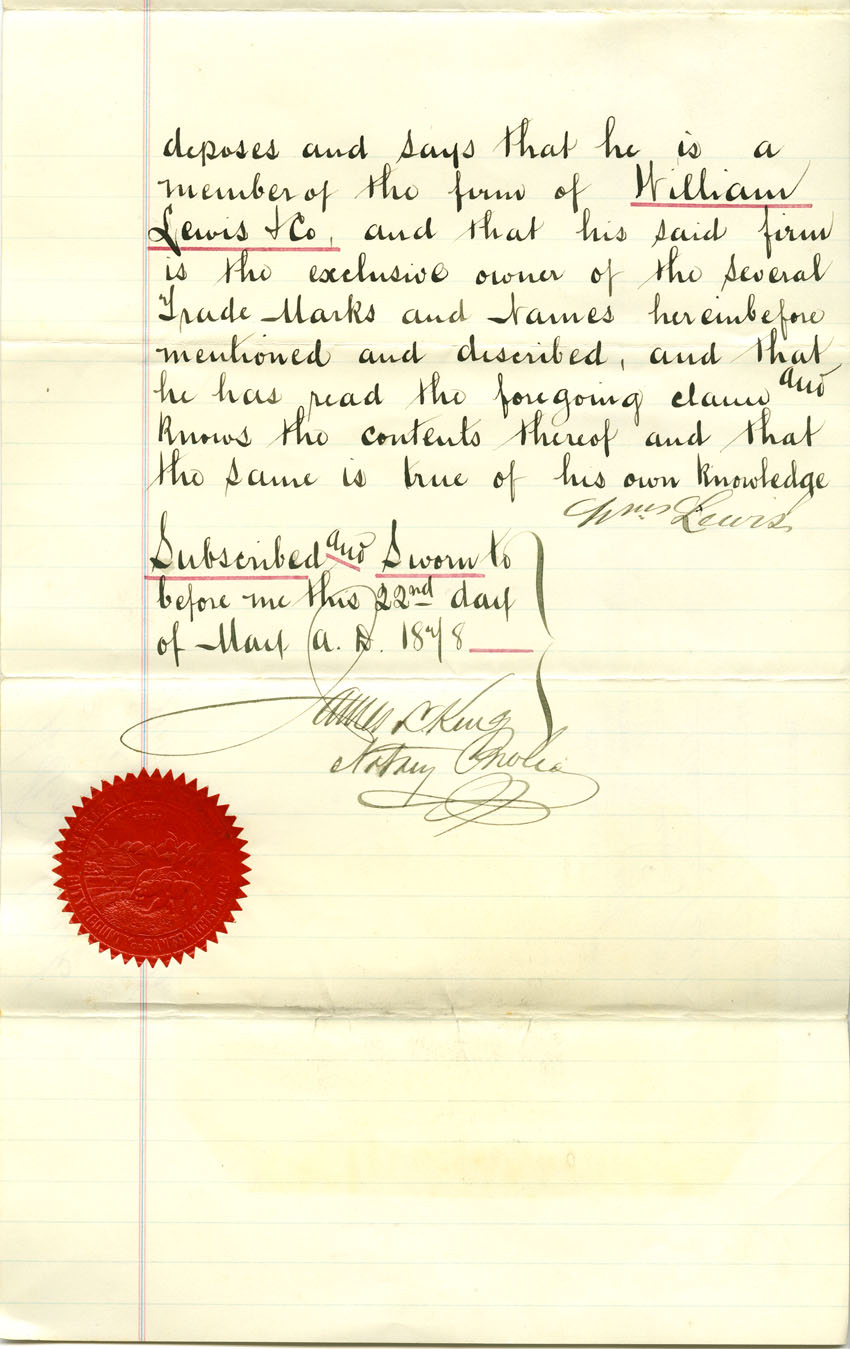 deposes and says that he is a
member of the firm of William
Lewis & Co, and that his said firm
is the exclusive owner of the several
Trade-Marks and Names hereinbefore
mentioned and described, and that
he has read the foregoing claim and
knows the contents thereof and that
the same is true of his own knowledge
Wms Lewis
Subscribed and Sworn to
before me this 22nd day
of May A.D. 1878
James L King
Notary Public